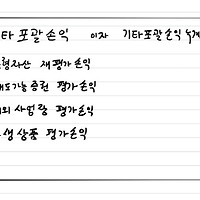 타 포괄손익 이자 기타포괄손익 누계
형자산 재평가손익
도가능 증권 평가손익
외 사업장 평가손익
생상품 평가손익